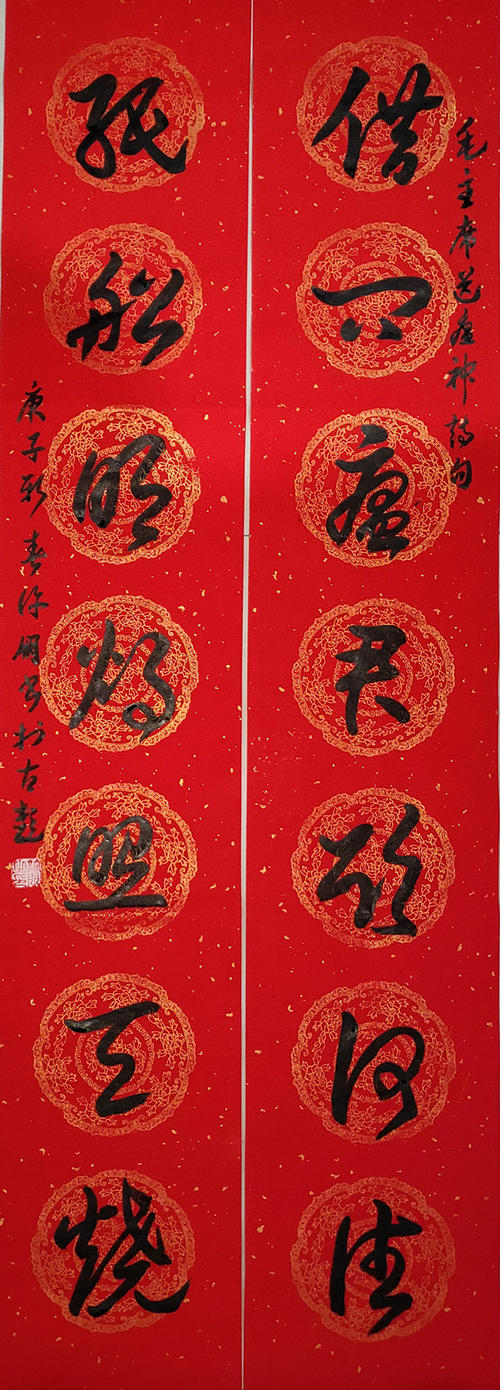 毛主席送瘟神诗句
借问瘟君欲何往
纸船明烛照天烧
庚子新春
于古彭